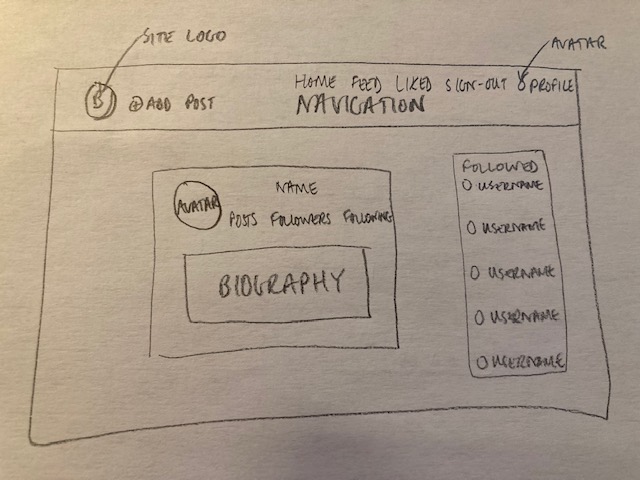 SITE LOGO
AVATAR
HOME FEED LIKED SIGN-OUT PROFILE
B ⊕ADD POST
NAVIGATION
NAME
AVATAR
POSTS FOLLOWERS FOLLOWING
BIOGRAPHY
FOLLOWED
O USERNAME
O USERNAME
O USERNAME
O USERNAME
O USERNAME